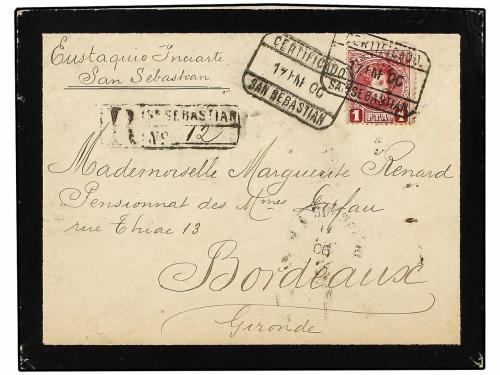 Eustaquio Inciarte
San Sebastian
CERTIFICADO
17 EN 00
SAN SEBASTIAN
CERTIFICADO.
EN 00
SAN SEBASTIAN
1 PTA
R SN SEBASTIAN
No 12
Mademoiselle Marguerite Renard
Pensionnat des Mmes
rue Thiac 13
Bordeaux
Gironde